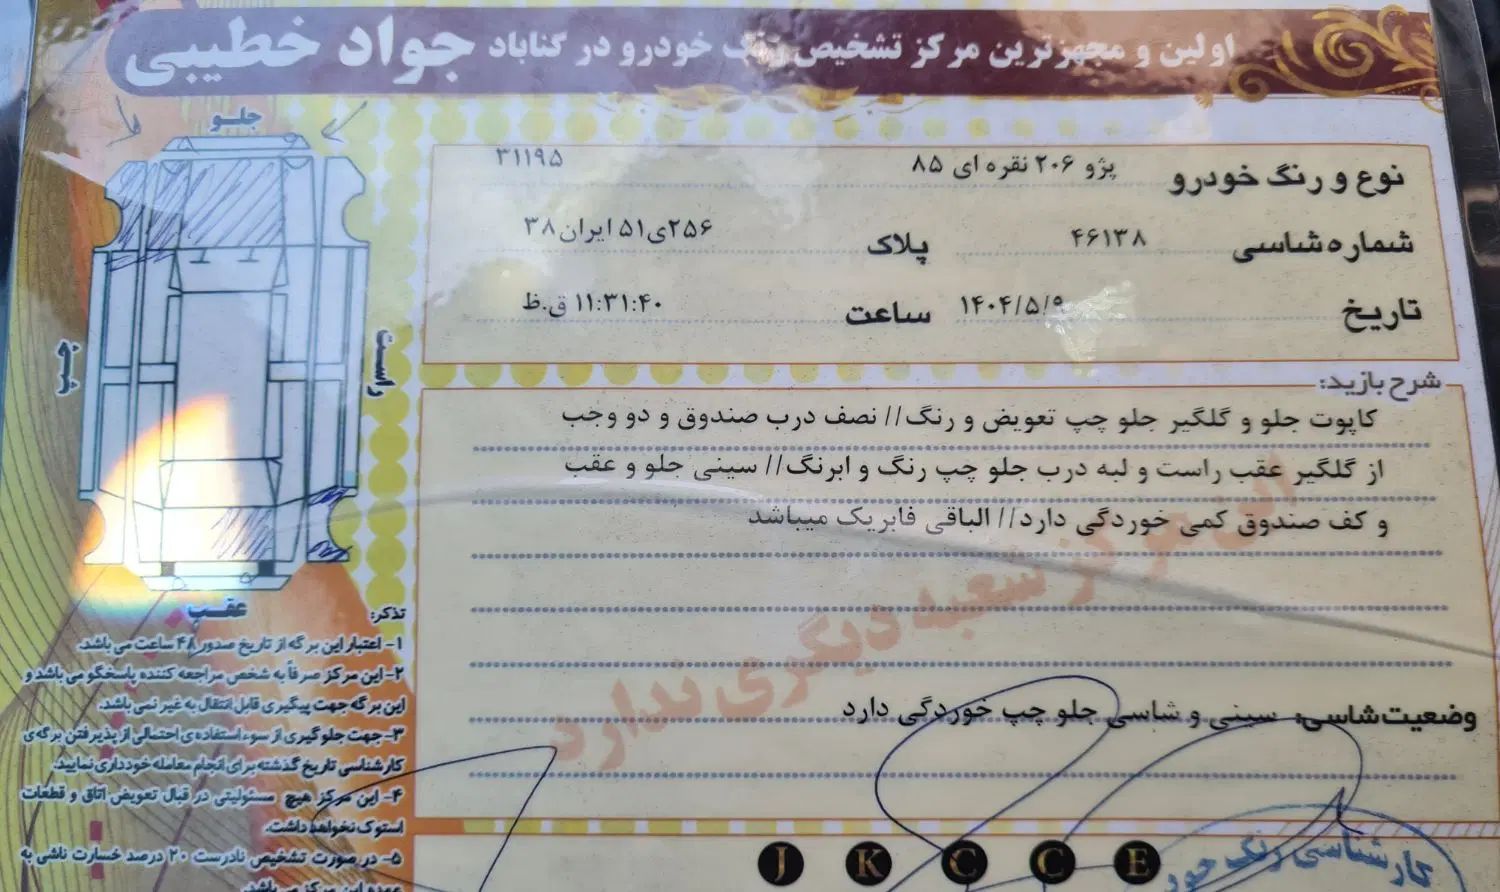 اولین و مجهزترین مرکز تشخیص رنگ خودرو در گناباد جواد خطیبی
نوع و رنگ خودرو پژو ۲۰۶ نقره ای ۸۵ ۳۱۱۹۵
شماره شاسی ۴۶۱۳۸ پلاک ۲۵۶ی۵۱ ایران۳۸
تاریخ ۱۴۰۴/۵/۹ ساعت ۱۱:۳۱:۴۰ ق.ظ
شرح بازدید:
کاپوت جلو و گلگیر جلو چپ تعویض و رنگ// نصف درب صندوق و دو وجب
از گلگیر عقب راست و لبه درب جلو چپ رنگ و ابرنگ// سینی جلو و عقب
و کف صندوق کمی خوردگی دارد// الباقی فابریک میباشد
این مرکز شعبه دیگری ندارد
وضعیت شاسی: سینی و شاسی جلو چپ خوردگی دارد
جلو
چپ
راست
عقب
تذکر:
۱- اعتبار این برگه از تاریخ صدور ۴۸ ساعت می باشد.
۲- این مرکز صرفاً به شخص مراجعه کننده پاسخگو می باشد و
این برگه جهت پیگیری قابل انتقال به غیر نمی باشد.
۳- جهت جلوگیری از سوء استفاده ی احتمالی از پذیرفتن برگه ی
کارشناسی تاریخ گذشته برای انجام معامله خودداری نمایید.
۴- این مرکز هیچ مسئولیتی در قبال تعویض اتاق و قطعات
استوک نخواهد داشت.
۵- در صورت تشخیص نادرست ۲۰ درصد خسارت ناشی به
عهده این مرکز می باشد.
J K C C E
کارشناسی رنگ خودرو